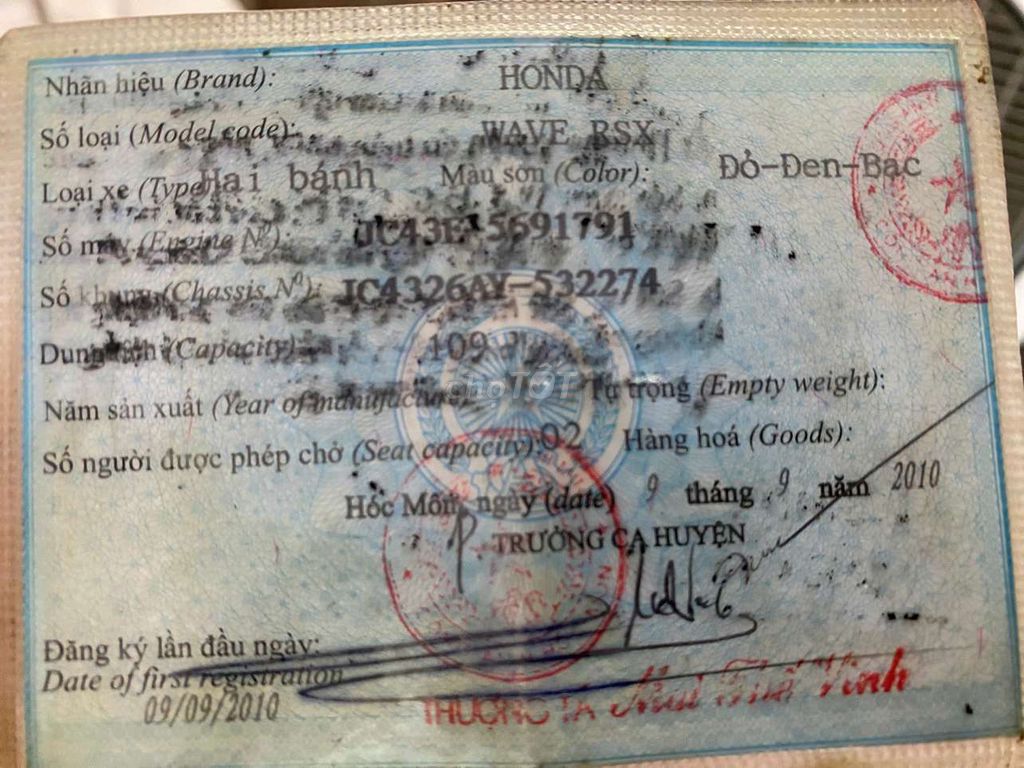 Nhãn hiệu (Brand): HONDA
Số loại (Model code): WAVE RSX
Loại xe (Type): Hai bánh Màu sơn (Color): Đỏ-Đen-Bạc
Số máy (Engine Nº): JC43E-5691791
Số khung (Chassis Nº): JC4326AY-532274
Dung tích (Capacity) 109
Năm sản xuất (Year of manufacture) Tự trọng (Empty weight):
Số người được phép chở (Seat capacity): 02 Hàng hoá (Goods):
Hóc Môn, ngày (date) 9 tháng 9 năm 2010
P. TRƯỞNG CA HUYỆN
Đăng ký lần đầu ngày:
Date of first registration
09/09/2010
THƯỢNG TÁ Mai Thế Vinh
choTỐT